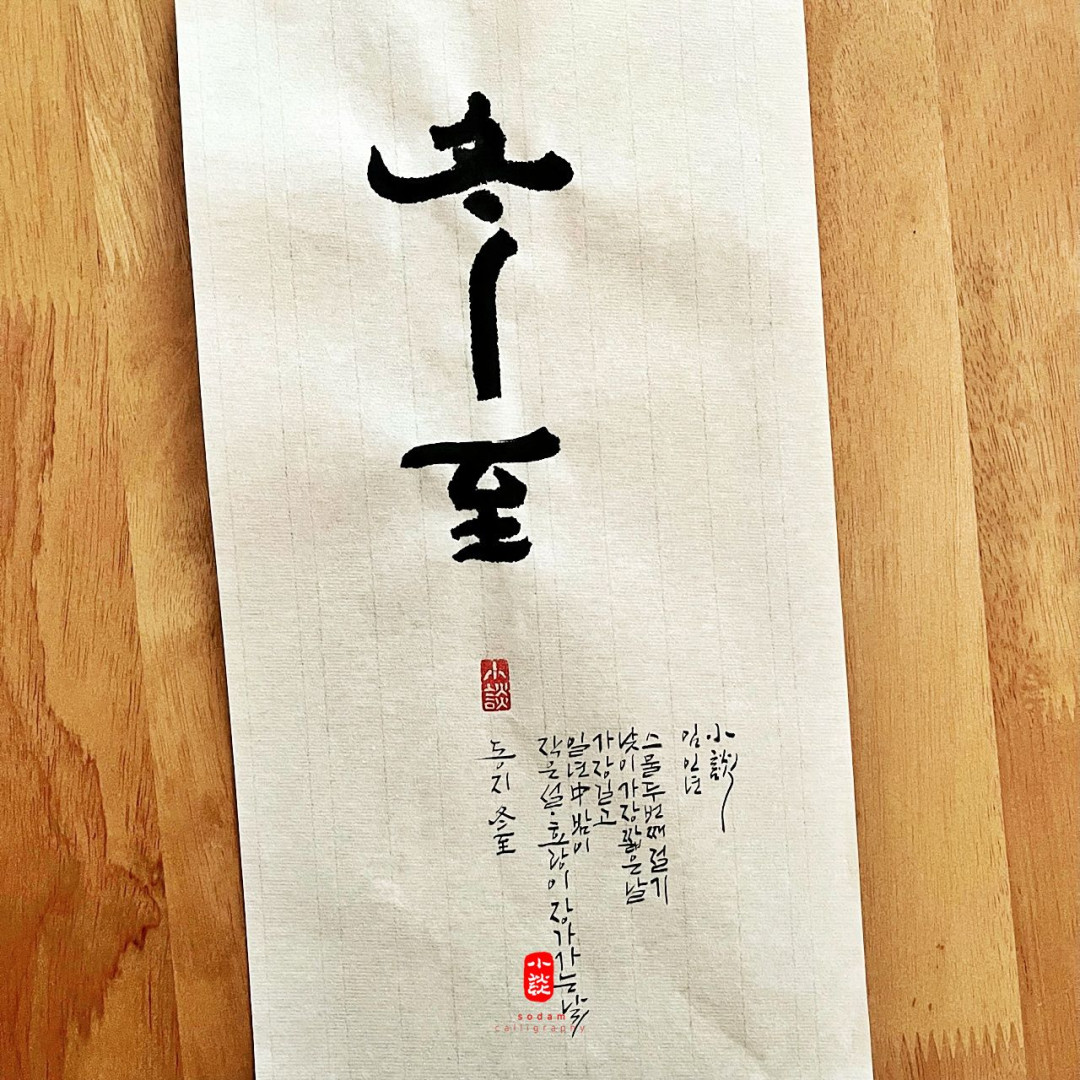 冬至
小談
동지 冬至
작은설·호랑이 장가가는 날
일년中 밤이
가장길고
낮이가장짧은날
스물두번째절기
임인년
小談
小談
sodam
calligraphy